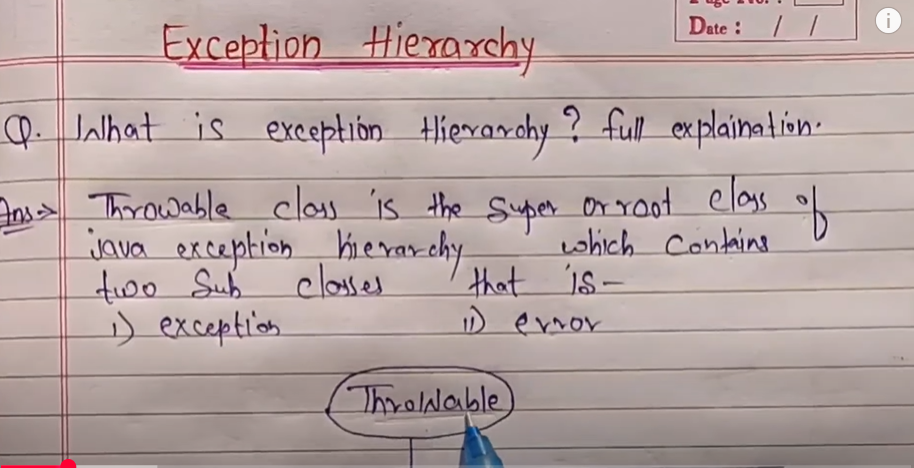 Date : / /
Exception Hierarchy
Q. What is exception Hierarchy? full explaination.
Ans⇒ Throwable class is the super or root class of
java exception hierarchy which contains
two sub classes that is—
i) exception ii) error
Throwable